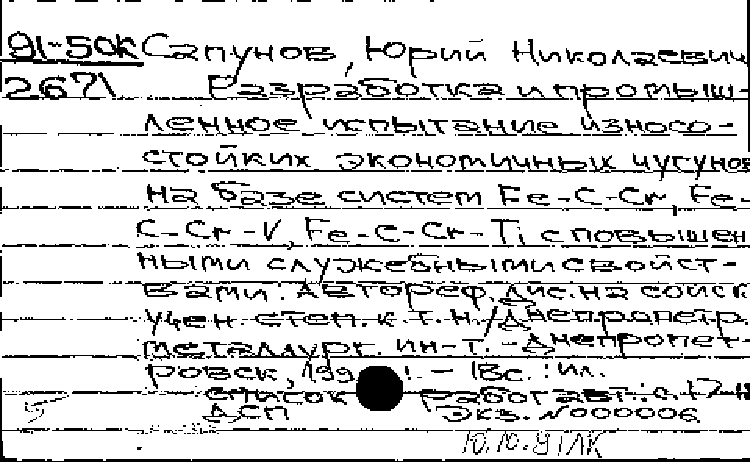 91-50к Сапунов, Юрий Николаевич
2671 Разработка и промыш-
ленное испытание износо-
стойких экономичных чугунов
на базе систем Fe-C-Cr, Fe-
C-Cr-V, Fe-C-Cr-Ti с повышен
ными служебными свойст-
вами. Автореф. дис. на соиск
учен. степ. к.т.н./Днепропетр.
металлург. ин-т. - Днепропет-
ровск, 199 1. - 18с. : ил.
Список работ авт.: с. 17-18
ДСП Экз. N000006
10.10.91